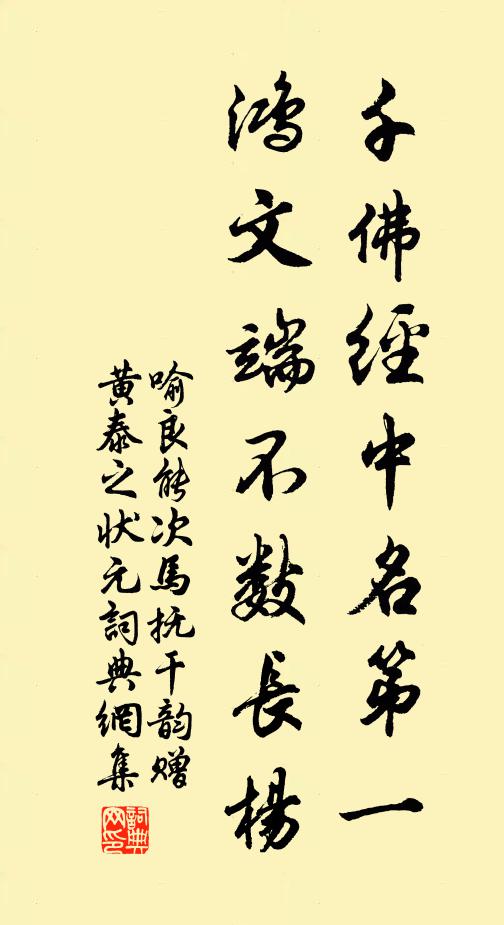 千佛經中名第一
鴻文端不數長楊
喻良能次馬抚干韵赠
黄泰之状元詞典網集
詞典网印